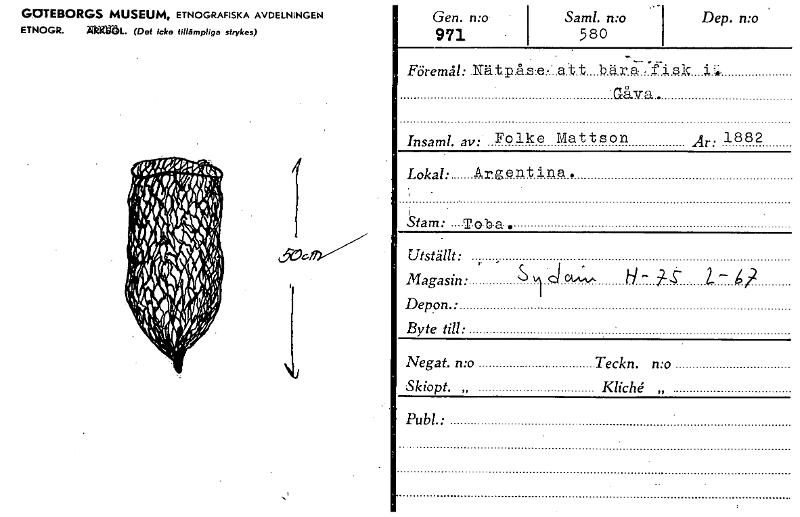 GÖTEBORGS MUSEUM, ETNOGRAFISKA AVDELNINGEN
ETNOGR. ARKEOL. (Det icke tillämpliga strykes)
50cm
Gen. n:o Saml. n:o Dep. n:o
971 580
Föremål: Nätpåse att bära fisk i.
Gåva.
Insaml. av: Folke Mattson År: 1882
Lokal: Argentina.
Stam: Toba.
Utställt:
Magasin: Sydam H-75 2-67
Depon.:
Byte till:
Negat. n:o Teckn. n:o
Skiopt. „ Kliché „
Publ.: